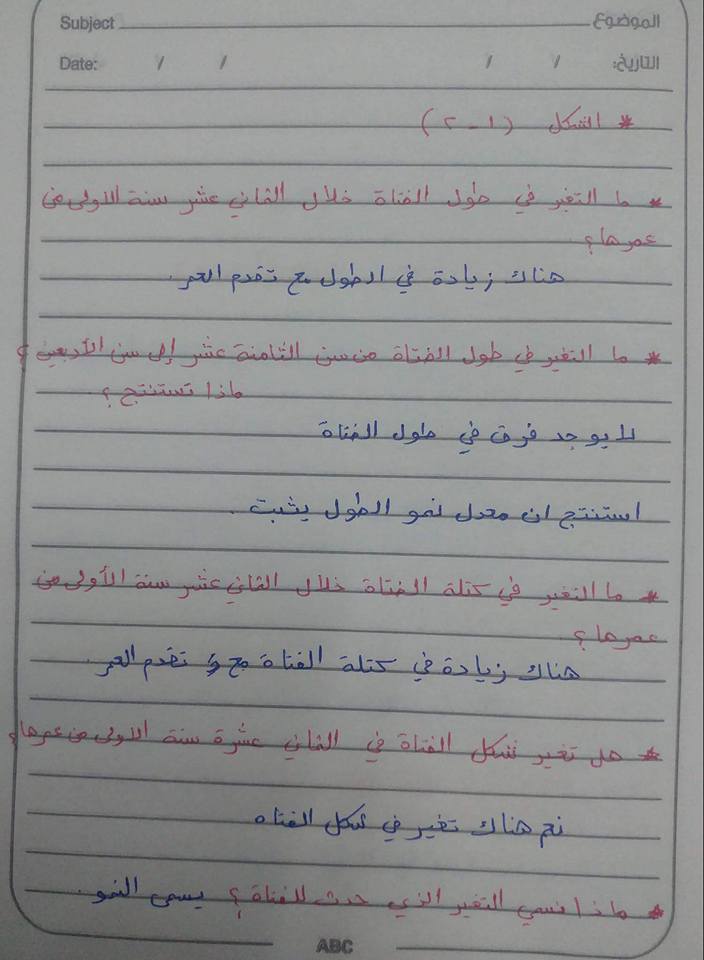 Subject الموضوع
Date: / / / / التاريخ:
* الشكل (١ - ٢)
* ما التغير في طول الفتاة خلال الثاني عشر سنة الاولى من
عمرها؟
هناك زيادة في الطول مع تقدم العمر.
* ما التغير في طول الفتاة من سن الثامنة عشر إلى سن الأربعين؟
ماذا تستنتج؟
لا يوجد فرق في طول الفتاة
استنتج ان معدل نمو الطول يثبت.
* ما التغير في كتلة الفتاة خلال الثاني عشر سنة الأولى من
عمرها؟
هناك زيادة في كتلة الفتاة مع تقدم العمر.
* هل تغير شكل الفتاة في الثاني عشرة سنة الاولى من عمرها؟
نعم هناك تغير في شكل الفتاه
* ماذا نسمي التغير الذي حدث للفتاة؟ يسمى النمو.
ABC